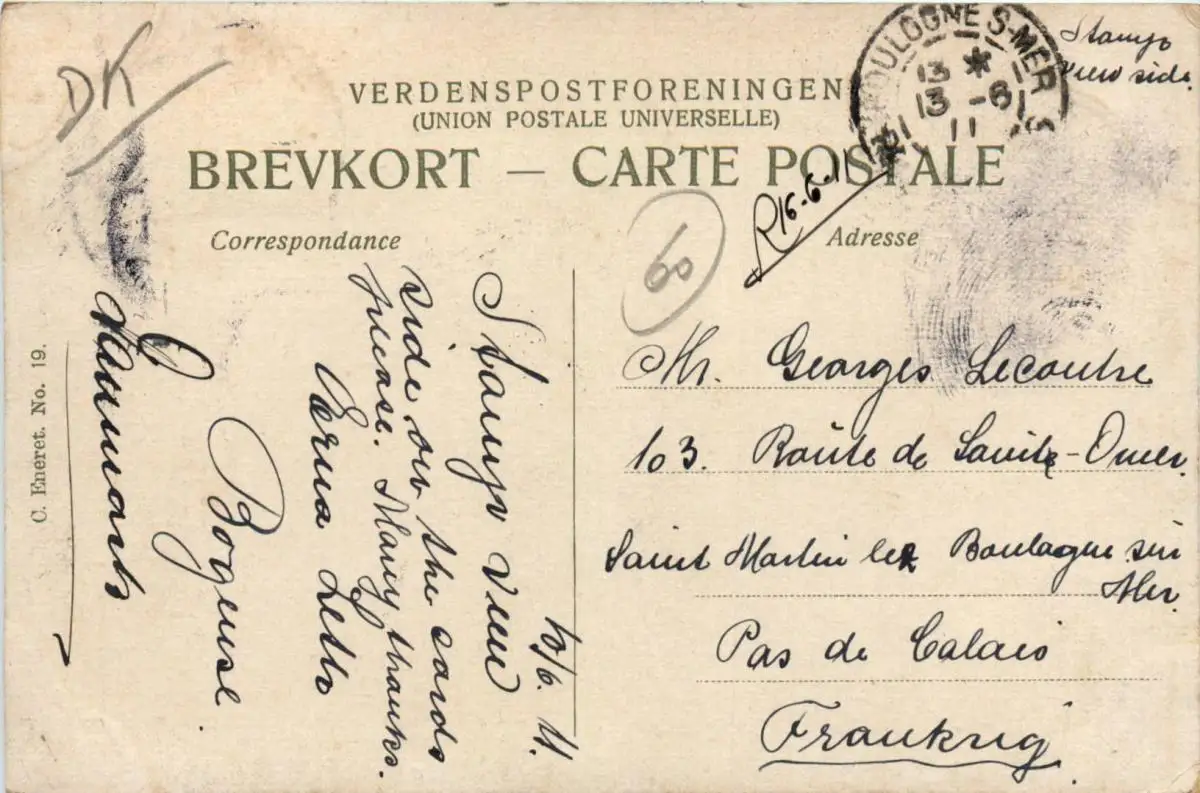 DK
BOULOGNE S-MER
13 *
13 -6
11
Stamp
view side.
VERDENSPOSTFORENINGEN
(UNION POSTALE UNIVERSELLE)
BREVKORT — CARTE POSTALE
Correspondance
Adresse
R 16-6-11
60
10/6. 11.
Stamp view
side on the cards
please. Many thanks.
Erna
Bogense
Danmark
Mr. Georges Lecoutre
103. Route de Saint-Omer.
Saint Martin lez Boulogne sur
Mer.
Pas de Calais
Frankrig.
C. Eneret. No. 19.